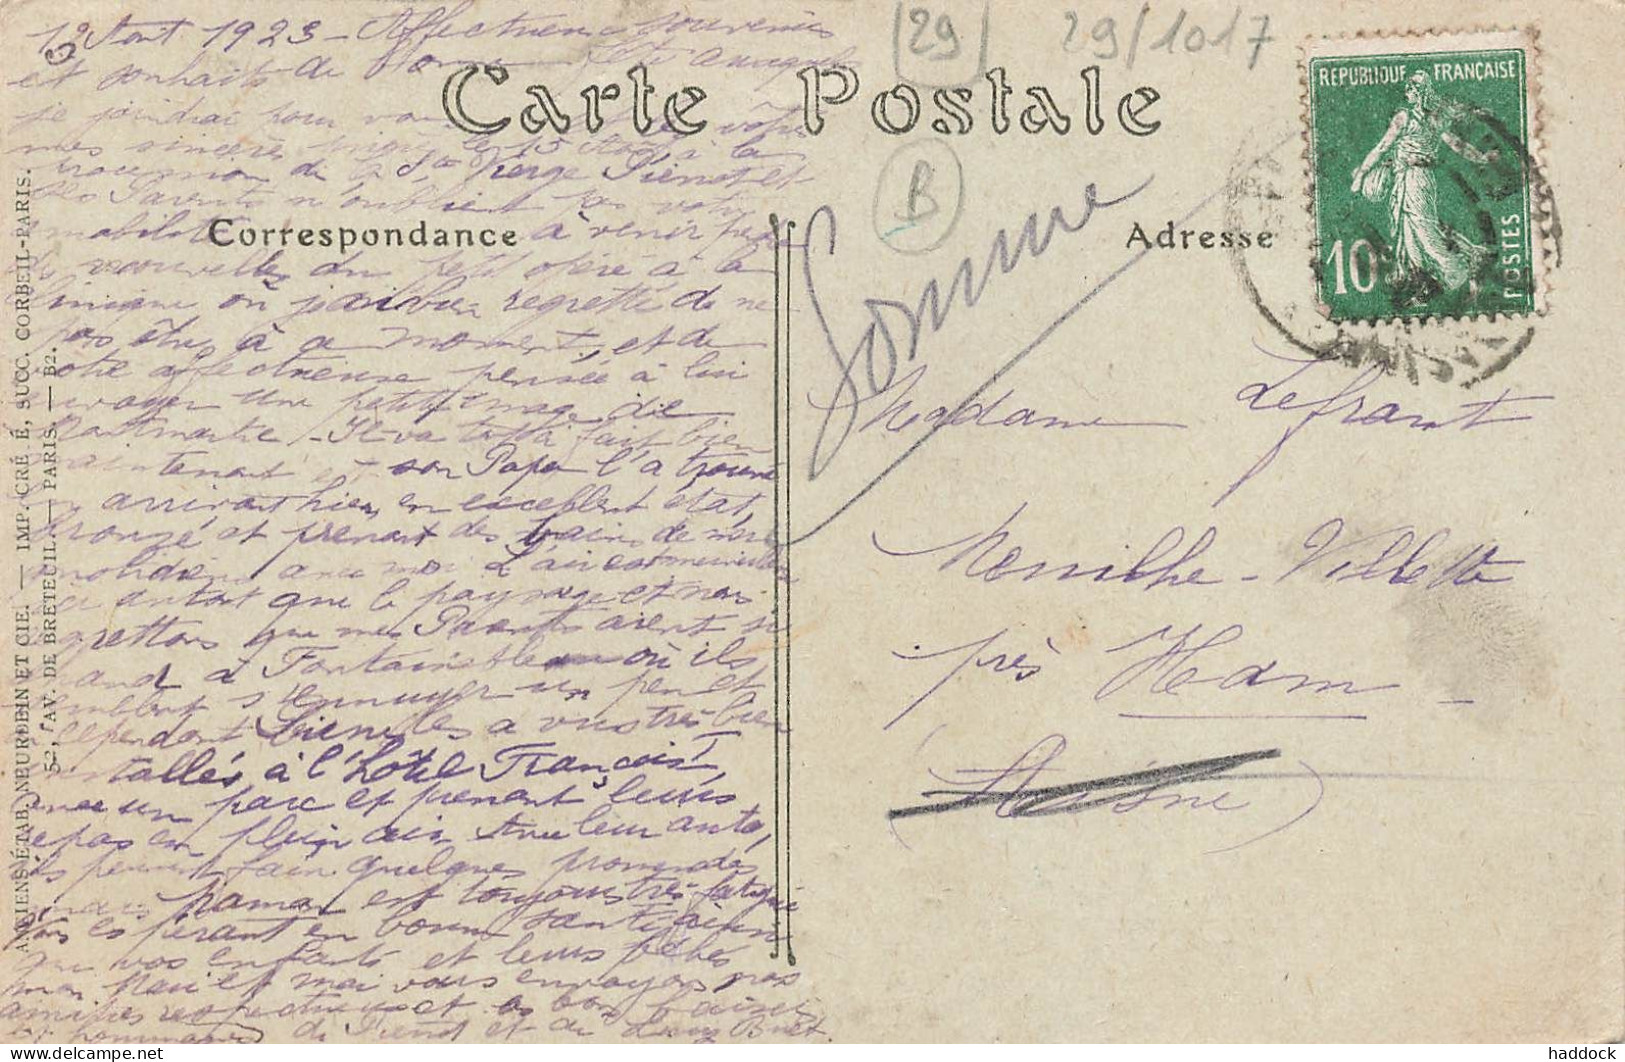 12 Août 1923 - Affectueux souvenirs
et souhaits de bonne fête auxquels
je joindrai pour vous
mes sincères le 15 Août à la
procession de la Ste Vierge Pierrot et
ses Parents n'oublient pas votre
amabilité à venir
nouvelles du petit opéré à la
clinique où j'ai bien regretté de ne
pas être à ce moment, et de
votre affectueuse pensée à lui
envoyer une petite image de
Montmartre - Il va tout à fait bien
maintenant et son Papa l'a trouvé
en arrivant hier, en excellent état,
bronzé et prenant des bains de mer
quotidiens avec moi L'air est merveilleux
ici autant que le paysage et nous
regrettons que mes Parents aient si
chaud à Fontainebleau où ils
semblent s'ennuyer un peu et
cependant les a vus très bien
installés à l'hôtel François I
avec un parc et prenant leurs
repas en plein air Avec leur auto,
ils peuvent faire quelques promenades
mais Maman est toujours très fatiguée
Vous espérant en bonne santé ainsi
que vos enfants et leurs bébés
mon Mari et moi vous envoyons nos
amitiés respectueuses et bons baisers
de Pierrot et de
Carte Postale
Correspondance
Adresse
(29)
29/1017
B
Somme
REPUBLIQUE FRANÇAISE
10c
POSTES
Madame Lefrant
Mesnilhe - Villette
près Ham
(Aisne)
ANCIENS ÉTAB. NEURDEIN ET CIE. — IMP. CRÉTÉ, SUCC. CORBEIL-PARIS.
52, AV. DE BRETEUIL. — PARIS. — B2.
haddock
www.delcampe.net